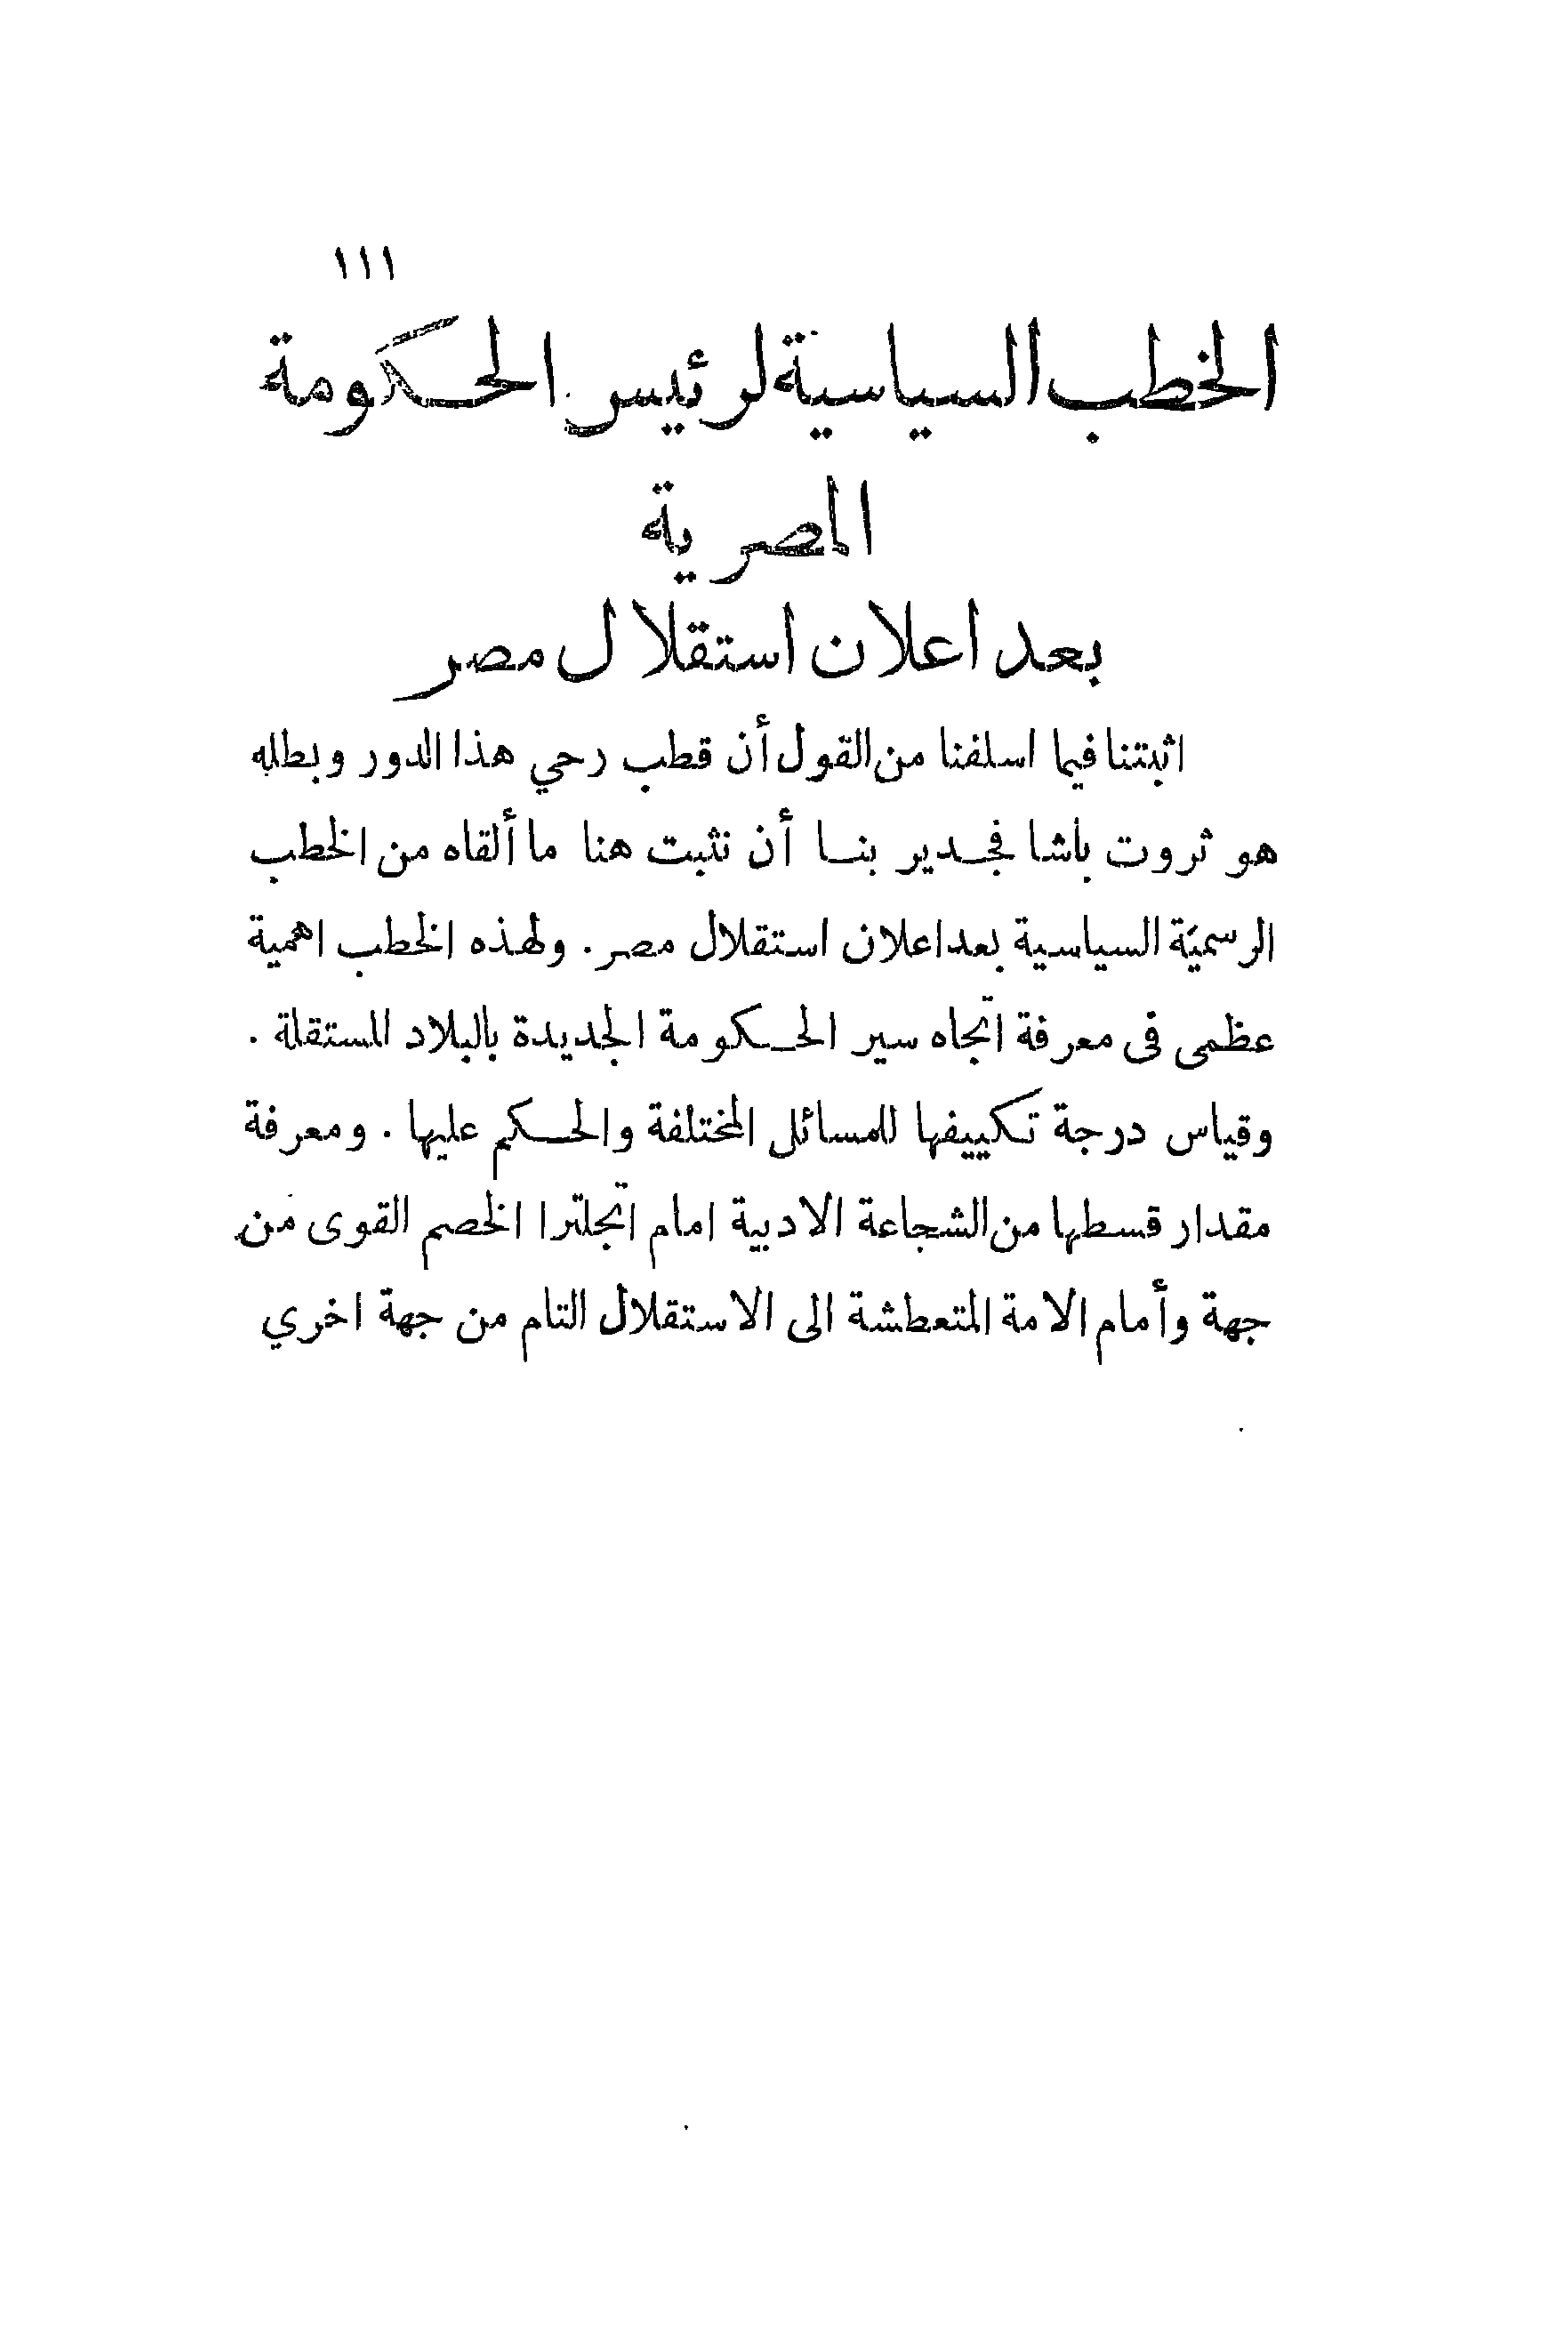 ١١١
الخطب السياسية لرئيس الحكومة
المصرية
بعد اعلان استقلال مصر
اثبتنا فيما اسلفنا من القول أن قطب رحي هذا الدور وبطله
هو ثروت باشا فجدير بنا أن نثبت هنا ما ألقاه من الخطب
الرسميّة السياسية بعد اعلان استقلال مصر. ولهذه الخطب اهمية
عظمى فى معرفة اتجاه سير الحكومة الجديدة بالبلاد المستقلة .
وقياس درجة تكييفها للمسائل المختلفة والحكم عليها . ومعرفة
مقدار قسطها من الشجاعة الادبية امام اتجلترا الخصم القوى من
جهة وأمام الامة المتعطشة الى الاستقلال التام من جهة اخري